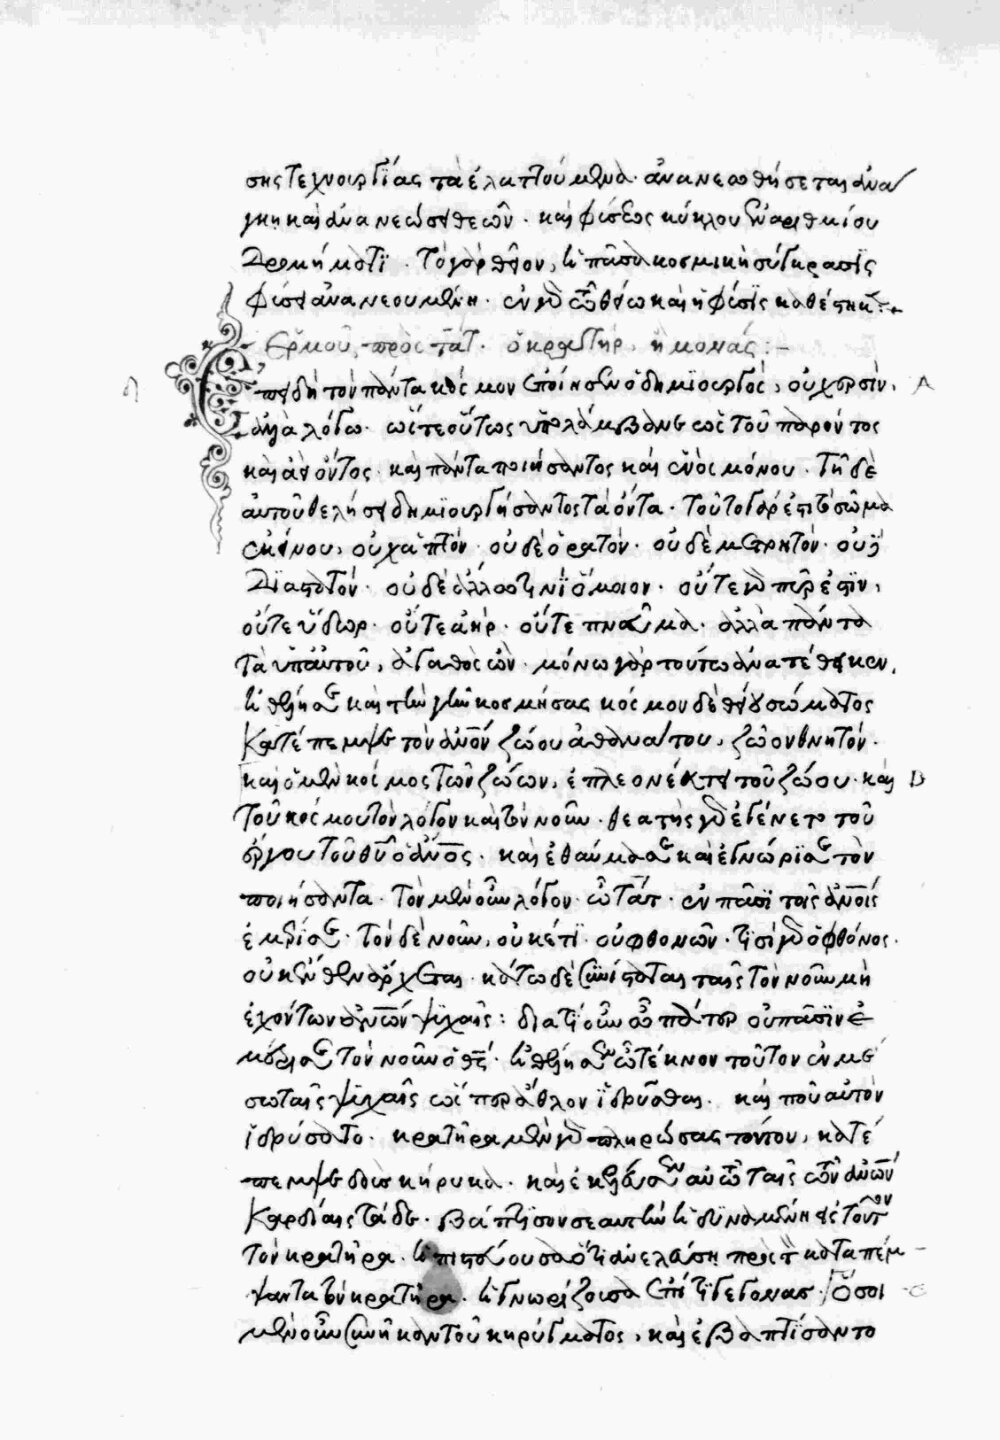 σης τεχνουργίας τὰ ἐλαττούμενα ἀνανεωθήσεται ἀνά
γκῃ καὶ ἀνανεώσει θεῶν · καὶ φύσεως κύκλου ἐναριθμίου
δρομήματι · τὸ γὰρ θεῖον, ἡ πᾶσα κοσμικὴ σύγκρασις
φύσει ἀνανεουμένη · ἐν γὰρ τῷ θείῳ καὶ ἡ φύσις καθέστηκεν :
Ἑρμοῦ, πρὸς τὰτ · ὁ κρατὴρ, ἢ μονάς : –
Ἐπειδὴ τὸν πάντα κόσμον ἐποίησεν ὁ δημιουργὸς, οὐ χερσὶν, A
ἀλλὰ λόγω · ὥστε οὕτως ὑπολάμβανε ὡς τοῦ παρόντος
καὶ ἀεὶ ὄντος · καὶ πάντα ποιήσαντος καὶ ἑνὸς μόνου · τῇ δὲ
αὐτοῦ θελήσει δημιουργήσαντος τὰ ὄντα · τοῦτο γάρ ἐστι τὸ σῶμα
ἐκείνου, οὐχ ἁπτὸν · οὐδὲ ὁρατὸν · οὐδὲ μετρητὸν · οὐδὲ
διαστατόν · οὐδὲ ἄλλω τινὶ ὅμοιον · οὔτε γὰρ πῦρ ἐστιν,
οὔτε ὕδωρ · οὔτε ἀὴρ · οὔτε πνεῦμα · ἀλλὰ πάντα
τὰ ὑπ' αὐτοῦ, ἀγαθὸς ὢν · μόνω γὰρ τούτω ἀνατέθεικεν,
ἠθέλησε καὶ τὴν γῆν κοσμῆσαι κόσμον δὲ θείου σώματος
κατέπεμψε τὸν ἄνον ζώου ἀθανάτου, ζῶον θνητόν ·
καὶ ὁ μὲν κόσμος τῶν ζώων, ἐπλεονέκτει τοῦ ζώου · καὶ B
τοῦ κόσμου τὸν λόγον καὶ τὸν νοῦν · θεατὴς γὰρ ἐγένετο τοῦ
ἔργου τοῦ θῦ ὁ ἄνος · καὶ ἐθαύμασε καὶ ἐγνώρισε τὸν
ποιήσαντα · τὸν μὲν οὖν λόγον · ὦ τὰτ · ἐν πᾶσι τοῖς ἀνοις
ἐμέρισε · τὸν δὲ νοῦν, οὐκέτι · οὐ φθονῶν · τισὶ γὰρ ὁ φθόνος ·
οὐκ ἔνθεν ἄρχεται · κάτω δὲ συνίσταται ταῖς τὸν νοῦν μὴ
ἐχόντων ἀνων ψυχαῖς : διατί οὖν ὦ πάτερ οὐ πᾶσιν ἐ
μέρισε τὸν νοῦν ὁ θς · ἠθέλησεν ὦ τέκνον τοῦτον ἐν μέ
σω ταῖς ψυχαῖς ὥσπερ ἆθλον ἱδρῦσθαι · καὶ ποῦ αὐτὸν
ἱδρύσατο · κρατῆρα μέγαν πληρώσας τούτου, κατέ
πεμψε δοὺς κήρυκα · καὶ ἐκέλευσεν αὐτῷ ταῖς τῶν ἀνων
καρδίαις τάδε · βάπτισον σεαυτὴν ἡ δυναμένη εἰς τοῦτον
τὸν κρατῆρα · ἡ πιστεύουσα ὅτι ἀνελεύση πρὸς τ καταπέμ
ψαντα τὸν κρατῆρα · ἡ γνωρίζουσα ἐπὶ τί γέγονας · ὅσοι C
μὲν οὖν συνῆκαν τοῦ κηρύγματος, καὶ ἐβαπτίσαντο